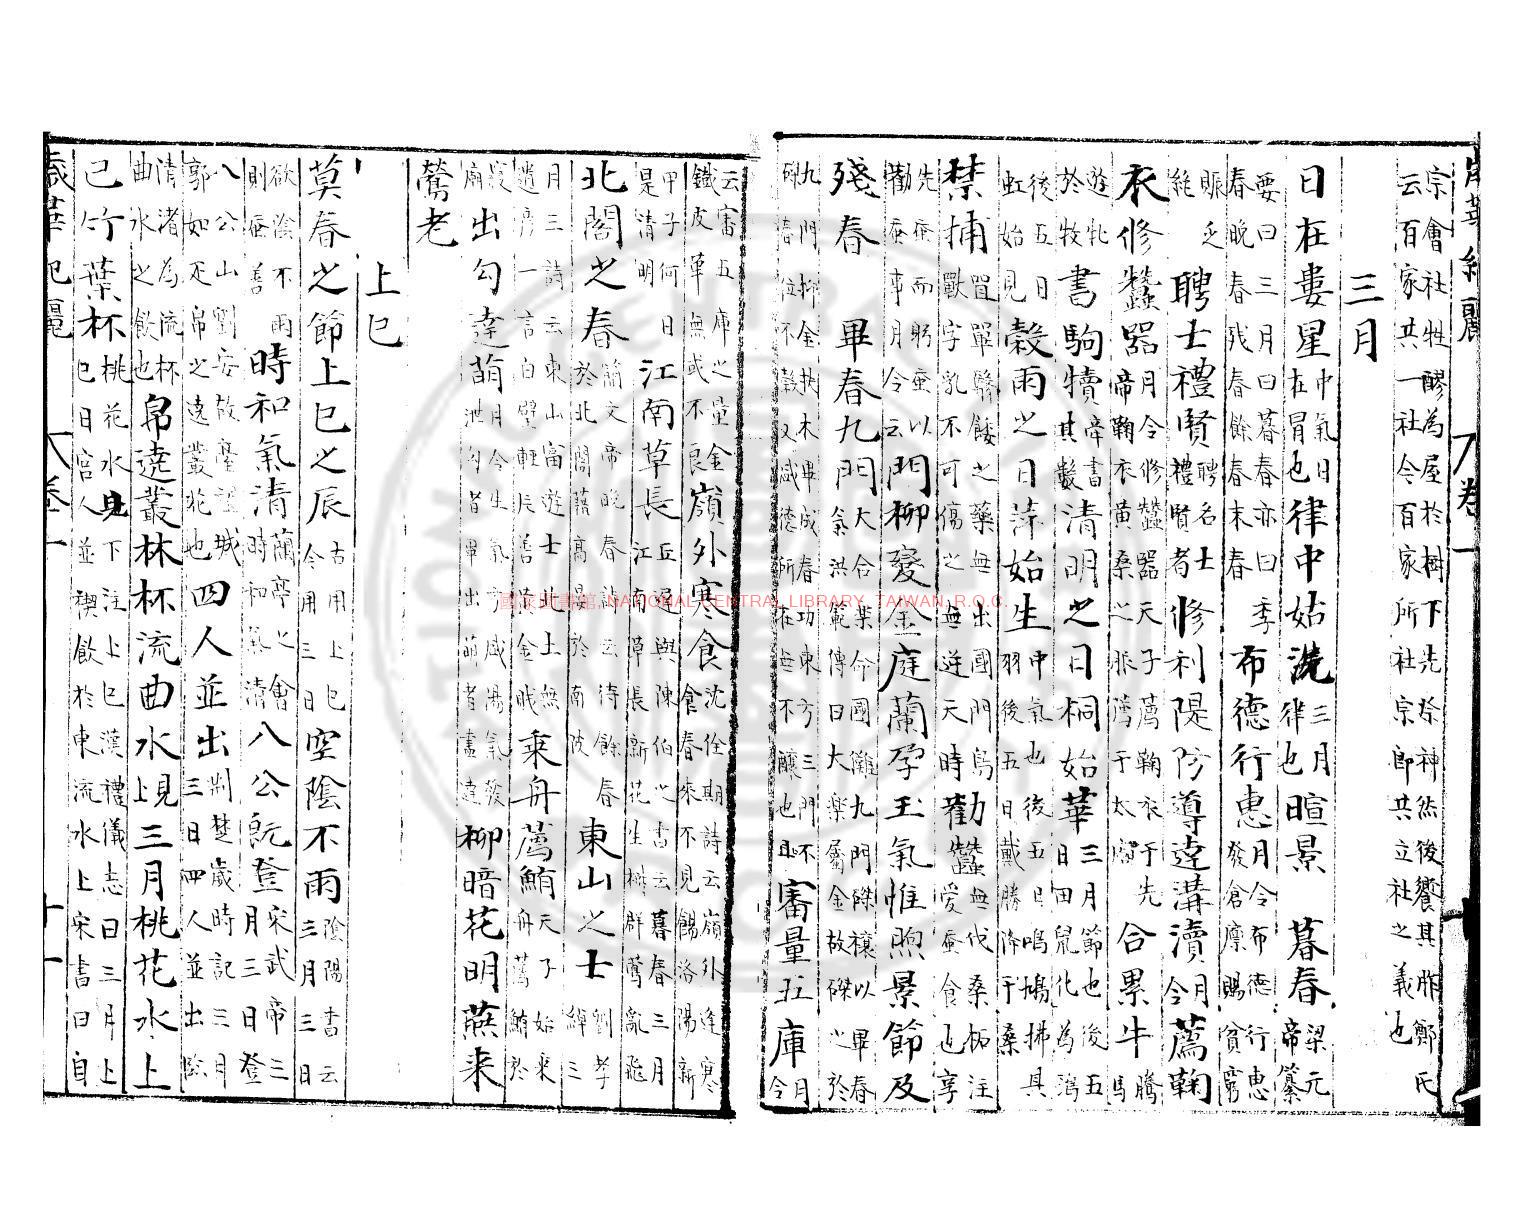 歲華紀麗 卷一
宗會社牲醪為屋於樹下先祭神然後饗其胙鄭氏
云百家共一社今百家所社宗郎共立社之義也
三月
日在婁星中氣日在胃也律中姑洗三月律也暄景 暮春梁元帝纂
要曰三月曰暮春亦曰季春晚春殘春餘春末春 布德行惠月令布德行惠發倉廩賜貧窮
賑乏絕 聘士禮賢聘名士禮賢者修利隄防導達溝瀆月令薦鞠
衣修蠶器月令修蠶器天子薦鞠衣于先帝鞠衣黃桑之服薦于太廟合累牛騰馬
遊牝於牧書駒犢帝書其數清明之日桐始華三月節也後五日田鼠化為鴽
後五日虹始見穀雨之日萍始生中氣也後五日鳴鳩拂其羽後五日戴勝降于桑
禁捕罝罘羅網餧獸之藥無出國門鳥獸字乳不可傷之無逆天時勸蠶無伐桑柘注愛蚕食也享
先蚕而躬蚕以勸蚕事月令云門柳變金庭蘭孕玉氣惟煦景節及
殘春 畢春九門氣大合樂命國儺九門磔禳以畢春氣洪範傳曰大樂屬金故磔之於
九門抑金扶木畢成春功東方三門不磔春位不殺又減德所在無不釀也審量五庫月令
云審五庫之量金鐵皮革無或不良嶺外寒食沈佺期詩云嶺外逢寒食春來不見餳洛陽新
甲子何日是清明江南草長丘遲與陳伯之書云暮春三月江南草長新花生樹群鶯亂飛
北閣之春簡文帝晚春詩云待餘春於北閣藉高宴於南陂東山之士劉孝綽三
月三詩云東山富遊士北土無遺彥一言白璧輕片善黃金賤乘舟薦鮪天子始乘舟薦鮪於
寢廟出勾達萌月令生氣方盛陽氣發泄勾者畢出萌者盡達柳暗花明燕來
鶯老
上巳
莫春之節上巳之辰古用上巳今用三日空陰不雨陰陽書云三月三日
欲陰不雨則蚕善時和氣清蘭亭之會時和氣清八公既登宋武帝三月三日登
八公山劉安故臺望城郭如疋帛之遶叢花也四人並出荊楚歲時記三月三日四人並出臨
清渚為流杯曲水之飲也帛遶叢林杯流曲水見上三月桃花水上
巳竹葉杯桃花水見下注上巳漢禮儀志曰三月上巳日宮人並禊飲於東流水上宋書曰自
歲華紀麗 卷一 十一